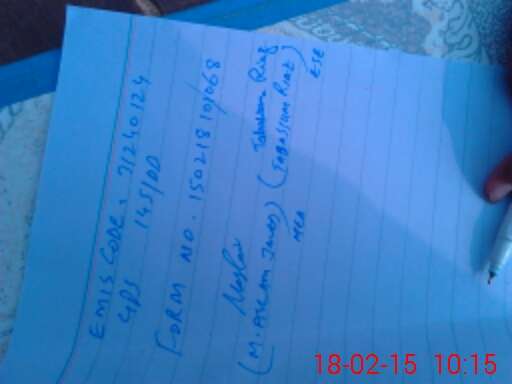 EMIS CODE. 31240124
GPS 145/DD
FORM NO. 15021810/068
(M. ASLAM Javed)
MEA
Tabassum Riaz
(TABASSUM RIAZ)
ESE
18-02-15 10:15